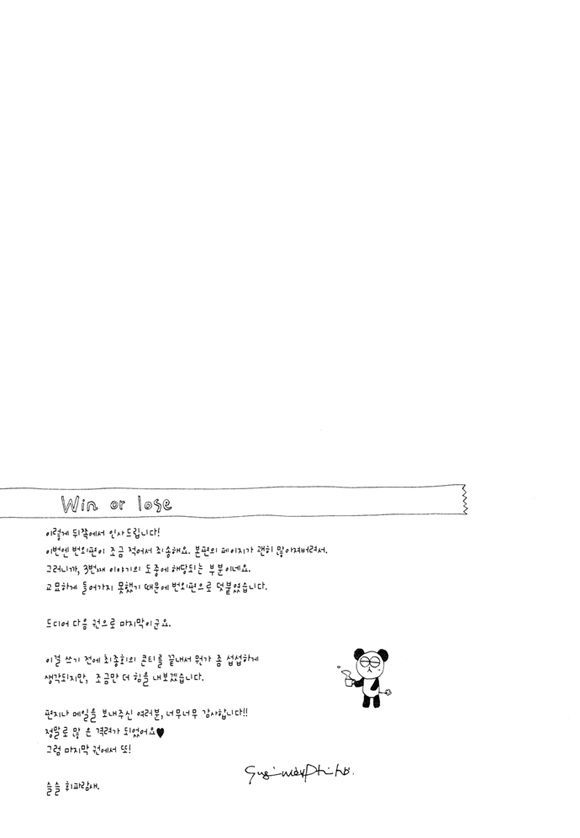 Win or lose
이렇게 뒤쪽에서 인사드립니다!
이번엔 번외편이 조금 적어서 죄송해요. 본편의 페이지가 괜히 많아져버려서.
그러니까, 3번째 이야기의 도중에 해당되는 부분이네요.
교묘하게 들어가지 못했기 때문에 번외편으로 덧붙였습니다.
드디어 다음 권으로 마지막이군요.
이걸 쓰기 전에 최종회의 콘티를 끝내서 뭔가 좀 섭섭하게
생각되지만, 조금만 더 힘을 내보겠습니다.
편지나 메일을 보내주신 여러분, 너무너무 감사합니다!!
정말로 많은 격려가 되었어요♥
그럼 마지막 권에서 또!